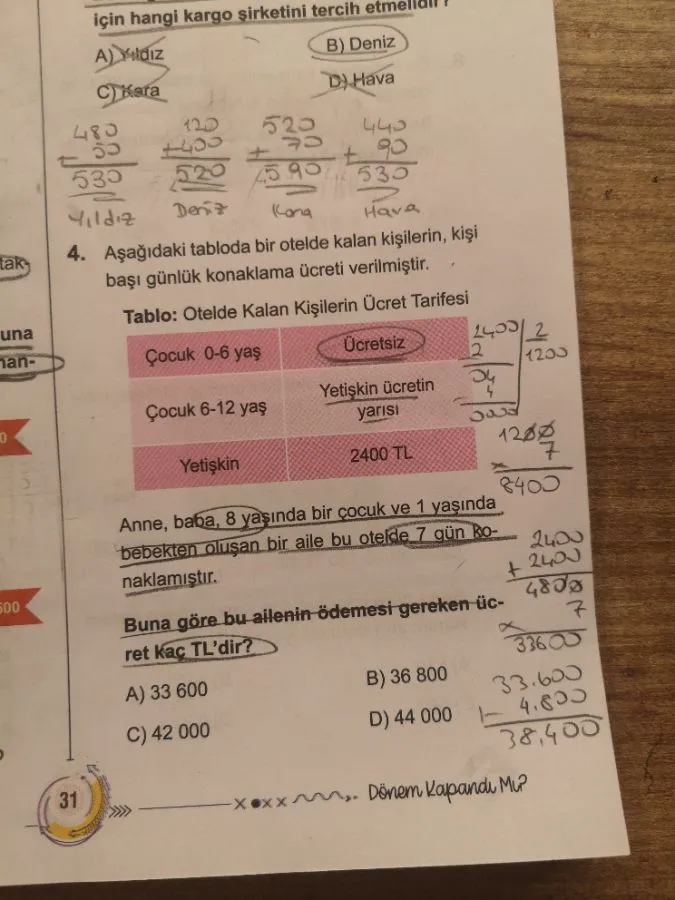 için hangi kargo şirketini tercih etmelidir?
A) Yıldız
B) Deniz
C) Kara
D) Hava
480
+ 50
530
Yıldız
120
+400
520
Deniz
520
+ 70
590
Kara
440
+ 90
530
Hava
tak-
una
man-
0
500
4. Aşağıdaki tabloda bir otelde kalan kişilerin, kişi
başı günlük konaklama ücreti verilmiştir.
Tablo: Otelde Kalan Kişilerin Ücret Tarifesi
Çocuk 0-6 yaş
Ücretsiz
Çocuk 6-12 yaş
Yetişkin ücretin
yarısı
Yetişkin
2400 TL
2400 2
2 1200
04
4
1200
x 7
8400
Anne, baba, 8 yaşında bir çocuk ve 1 yaşında
bebekten oluşan bir aile bu otelde 7 gün ko-
naklamıştır.
2400
+ 2400
4800
x 7
33600
Buna göre bu ailenin ödemesi gereken üc-
ret kaç TL'dir?
A) 33 600
B) 36 800
C) 42 000
D) 44 000
33.600
4.800
38.400
31
Dönem Kapandı Mı?